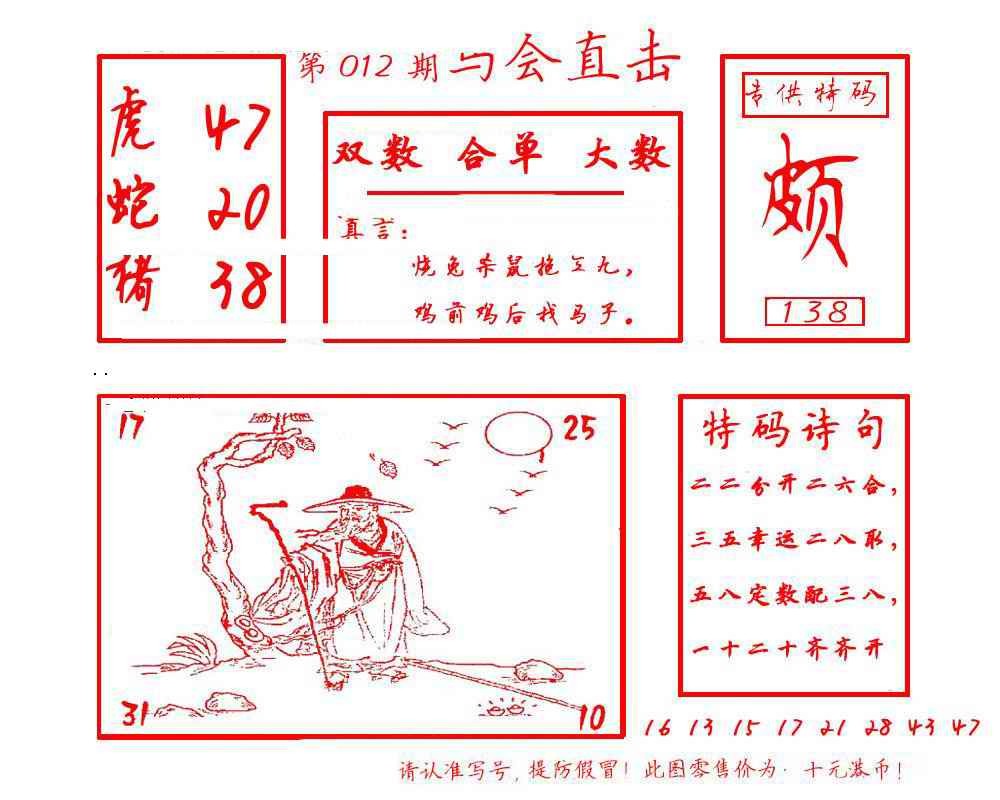 第 012 期 与会直击
虎 47
蛇 20
猪 38
双数 合单 大数
真言：
烧兔杀鼠拖五九，
鸡前鸡后找马子。
专供特码
颇
138
17
25
31
10
特码诗句
二二分开二六合，
三五幸运二八取，
五八定数配三八，
一十二十齐齐开
16 13 15 17 21 28 43 47
请认准写号，提防假冒！此图零售价为·十元港币！